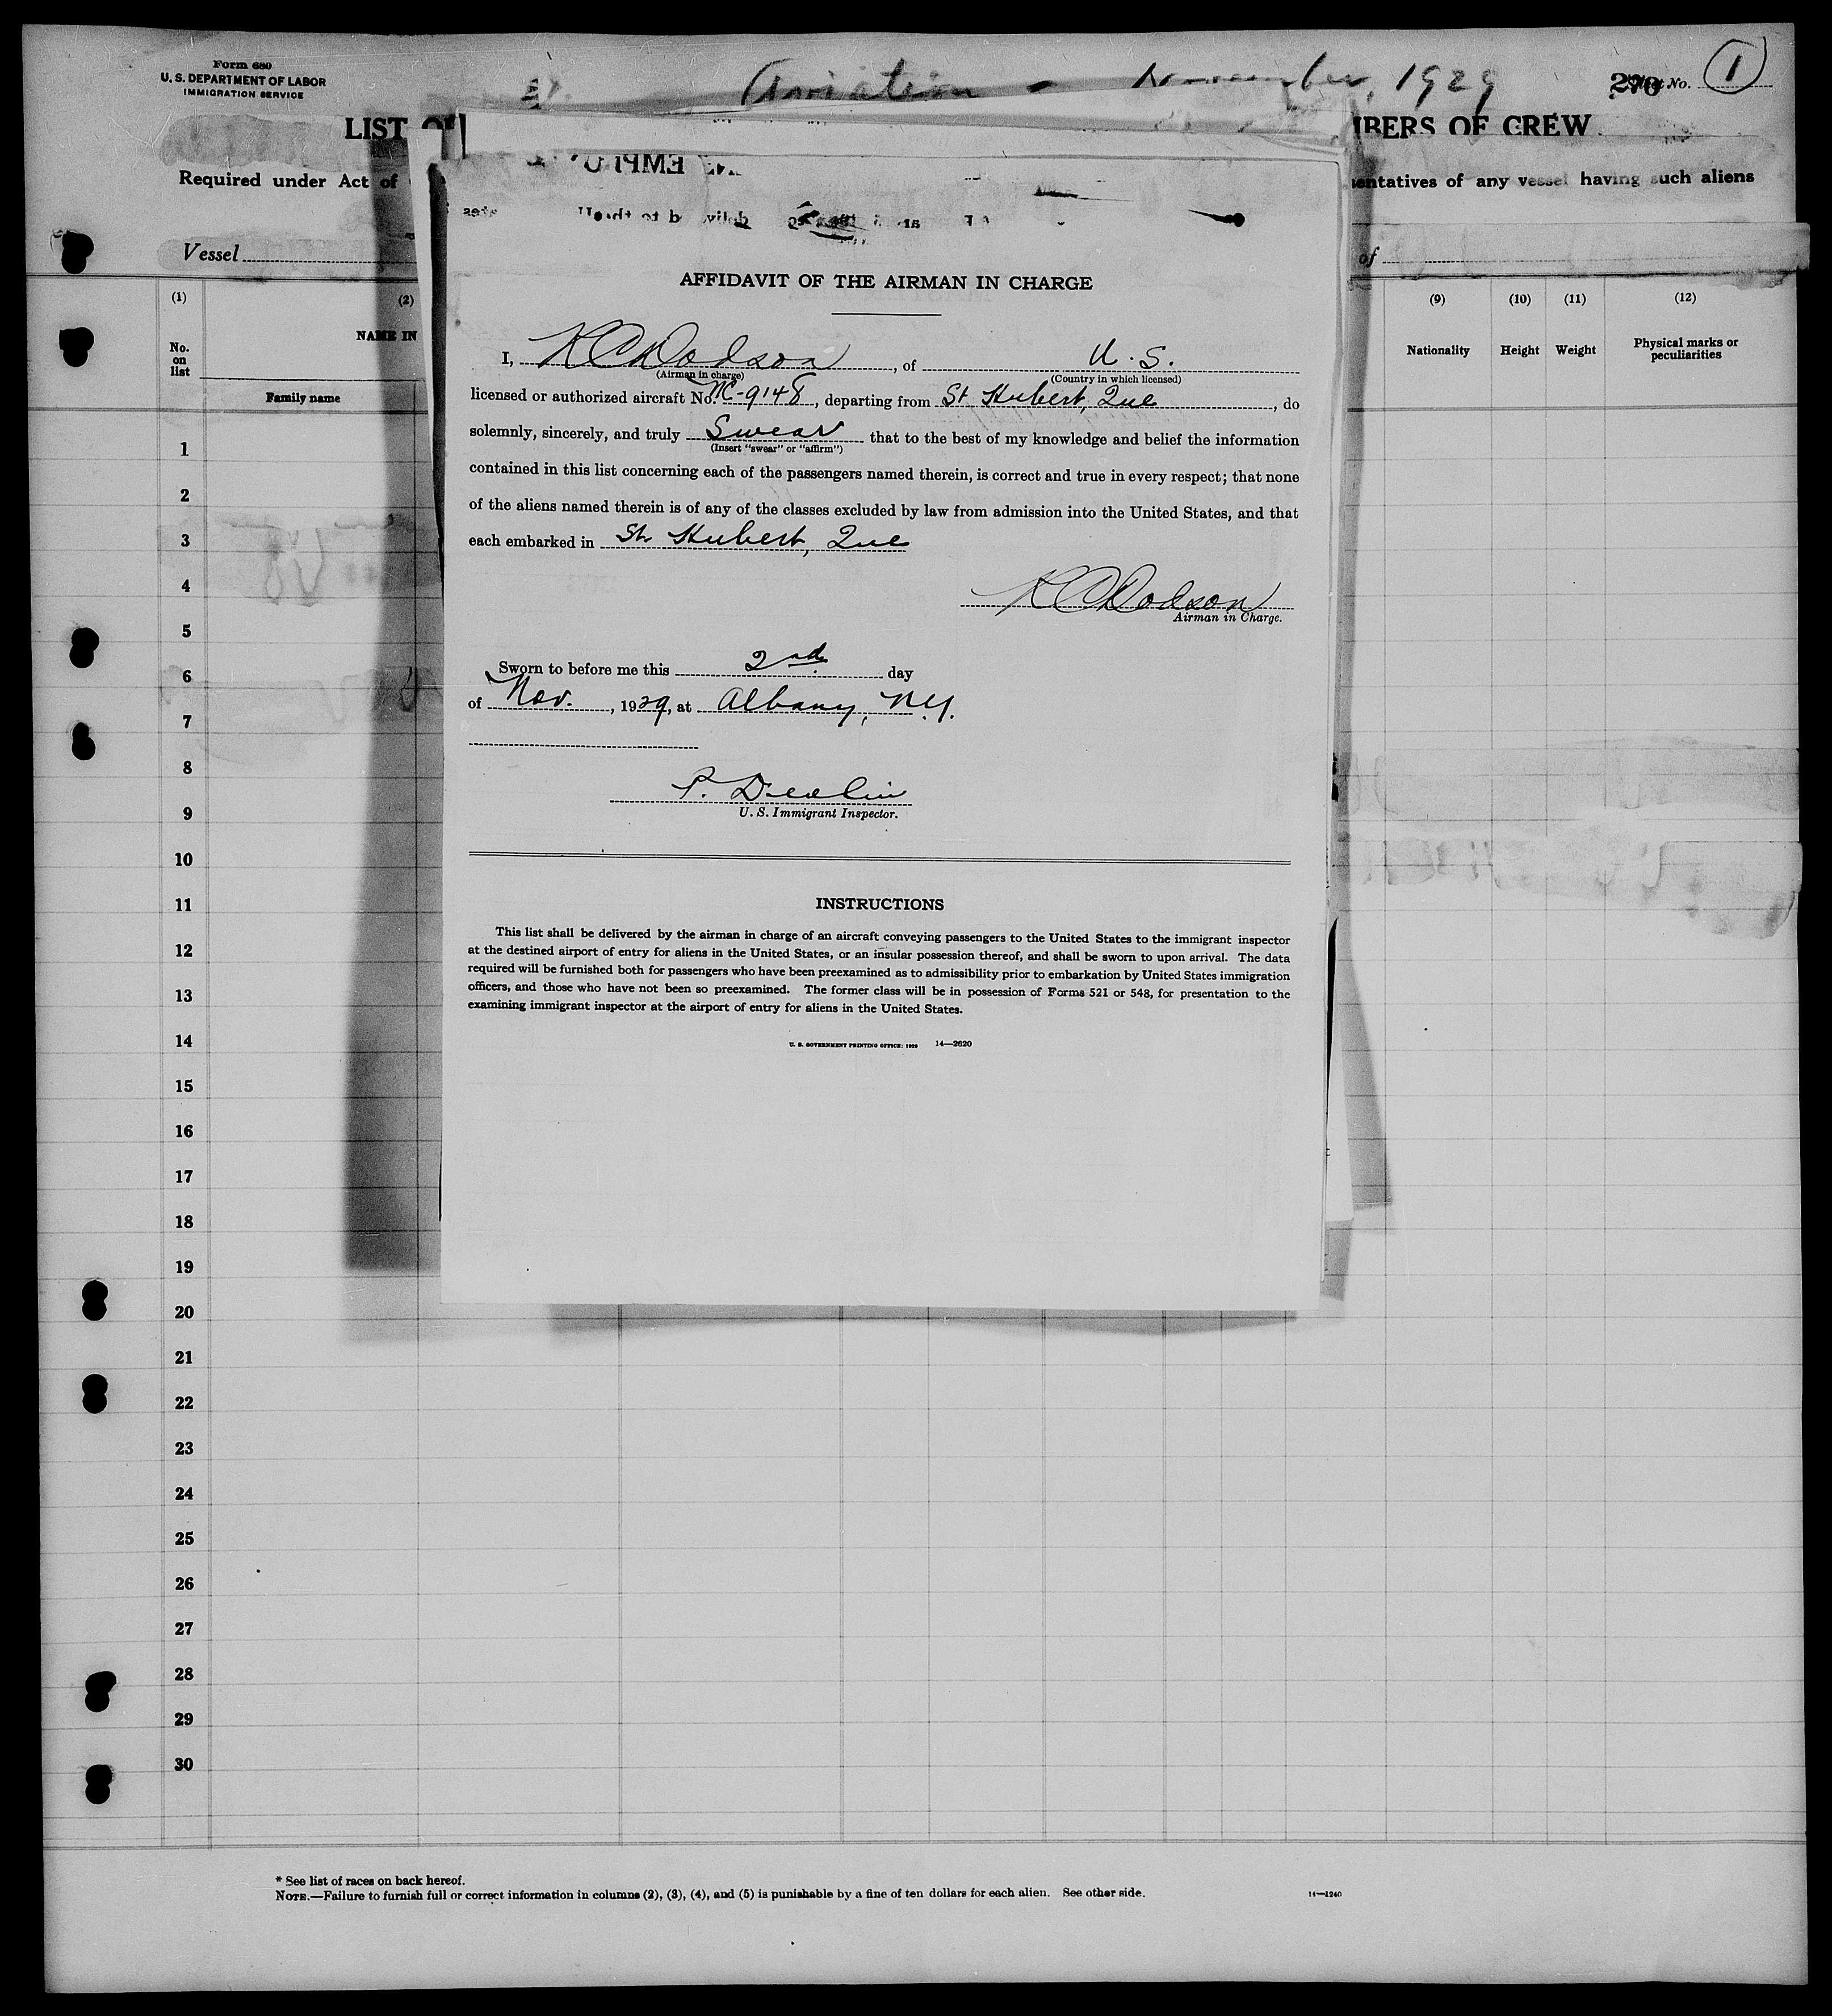 Form 680
U. S. DEPARTMENT OF LABOR
IMMIGRATION SERVICE
Aviation - November, 1929
270
No. 1
LIST OF
MBERS OF CREW
Required under Act of
sentatives of any vessel having such aliens
Vessel
of
(1)
(2)
(9)
(10)
(11)
(12)
No. on list
NAME IN
Family name
Nationality
Height
Weight
Physical marks or peculiarities
AFFIDAVIT OF THE AIRMAN IN CHARGE
I, K C Dodson, of U. S.
(Airman in charge) (Country in which licensed)
licensed or authorized aircraft No. NC-9148, departing from St Hubert, Que, do
solemnly, sincerely, and truly Swear that to the best of my knowledge and belief the information
(Insert "swear" or "affirm")
contained in this list concerning each of the passengers named therein, is correct and true in every respect; that none
of the aliens named therein is of any of the classes excluded by law from admission into the United States, and that
each embarked in St Hubert, Que
K C Dodson
Airman in Charge.
Sworn to before me this 2nd day
of Nov., 1929, at Albany, N.Y.
P. Devlin
U. S. Immigrant Inspector.
INSTRUCTIONS
This list shall be delivered by the airman in charge of an aircraft conveying passengers to the United States to the immigrant inspector
at the destined airport of entry for aliens in the United States, or an insular possession thereof, and shall be sworn to upon arrival. The data
required will be furnished both for passengers who have been preexamined as to admissibility prior to embarkation by United States immigration
officers, and those who have not been so preexamined. The former class will be in possession of Forms 521 or 548, for presentation to the
examining immigrant inspector at the airport of entry for aliens in the United States.
U. S. GOVERNMENT PRINTING OFFICE: 1929 14—2620
1
2
3
4
5
6
7
8
9
10
11
12
13
14
15
16
17
18
19
20
21
22
23
24
25
26
27
28
29
30
* See list of races on back hereof.
NOTE.—Failure to furnish full or correct information in columns (2), (3), (4), and (5) is punishable by a fine of ten dollars for each alien. See other side.
14—1240